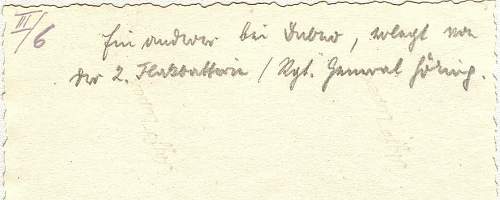 III/6
Ein anderer bei Dubno, erlegt von
der 2. Flakbatterie / Rgt. General Göring.